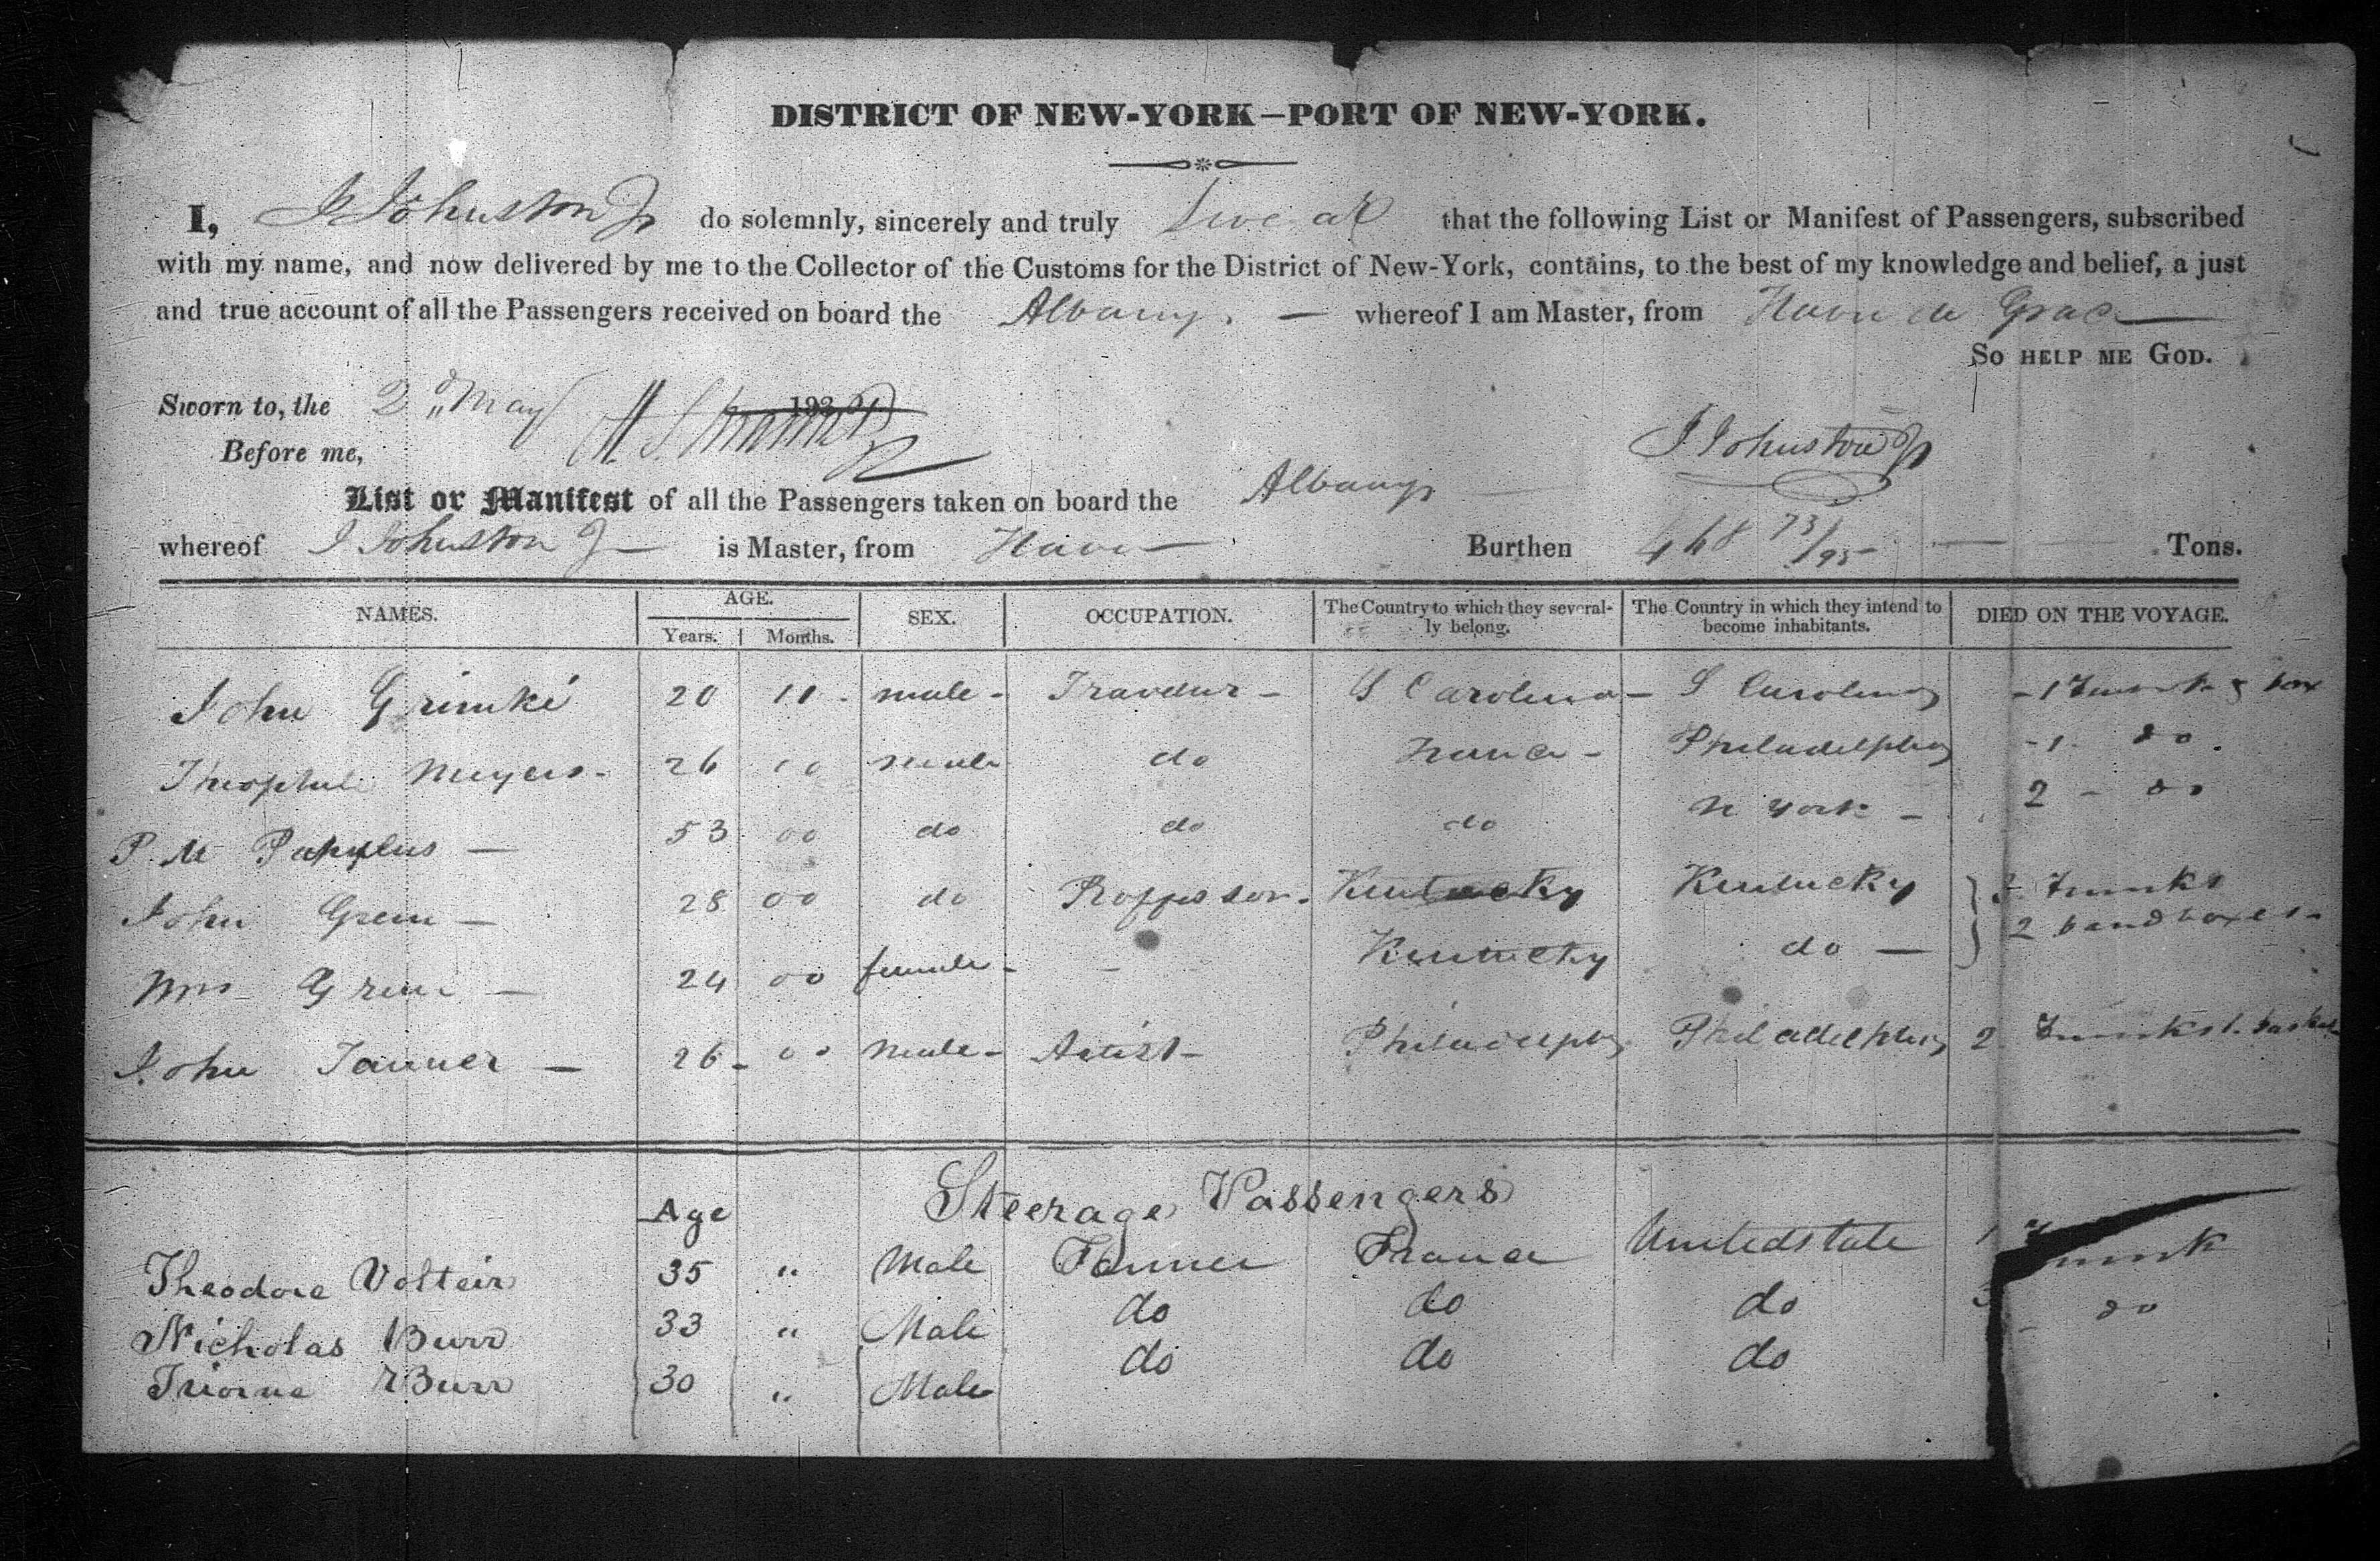 DISTRICT OF NEW-YORK—PORT OF NEW-YORK.
I, J Johnston Jr do solemnly, sincerely and truly Swear that the following List or Manifest of Passengers, subscribed
with my name, and now delivered by me to the Collector of the Customs for the District of New-York, contains, to the best of my knowledge and belief, a just
and true account of all the Passengers received on board the Albany. — whereof I am Master, from Havre de Grace
So HELP ME GOD.
Sworn to, the 2d May 183
Before me,
J Johnston Jr
List or Manifest of all the Passengers taken on board the Albany
whereof J Johnston Jr is Master, from Havre Burthen 468 73/95 Tons.
NAMES. AGE. Years. Months. SEX. OCCUPATION. The Country to which they several-ly belong. The Country in which they intend to become inhabitants. DIED ON THE VOYAGE.
John Grimké 20 11 - male - S Carolina - S Carolina - 1 Trunk & box
Theophile Meyers - 26 00 male do France - Philadelphia - 1 do
P. M 53 00 do do do N York - 2 - do
John Green — 28 00 do Proffessor. Kentucky Kentucky 3 Trunks
2 bandboxes -
Mrs Green — 24 00 female - - Kentucky do —
John Tanner — 26 - 00 male - Artist - Philadelphia Philadelphia 2 Trunks 1 basket
Steerage Passengers
Age
Theodore Voltair 35 " Male France United State 1 Trunk
Nicholas Burr 33 " Male do do do 3 do
Burr 30 " Male do do do